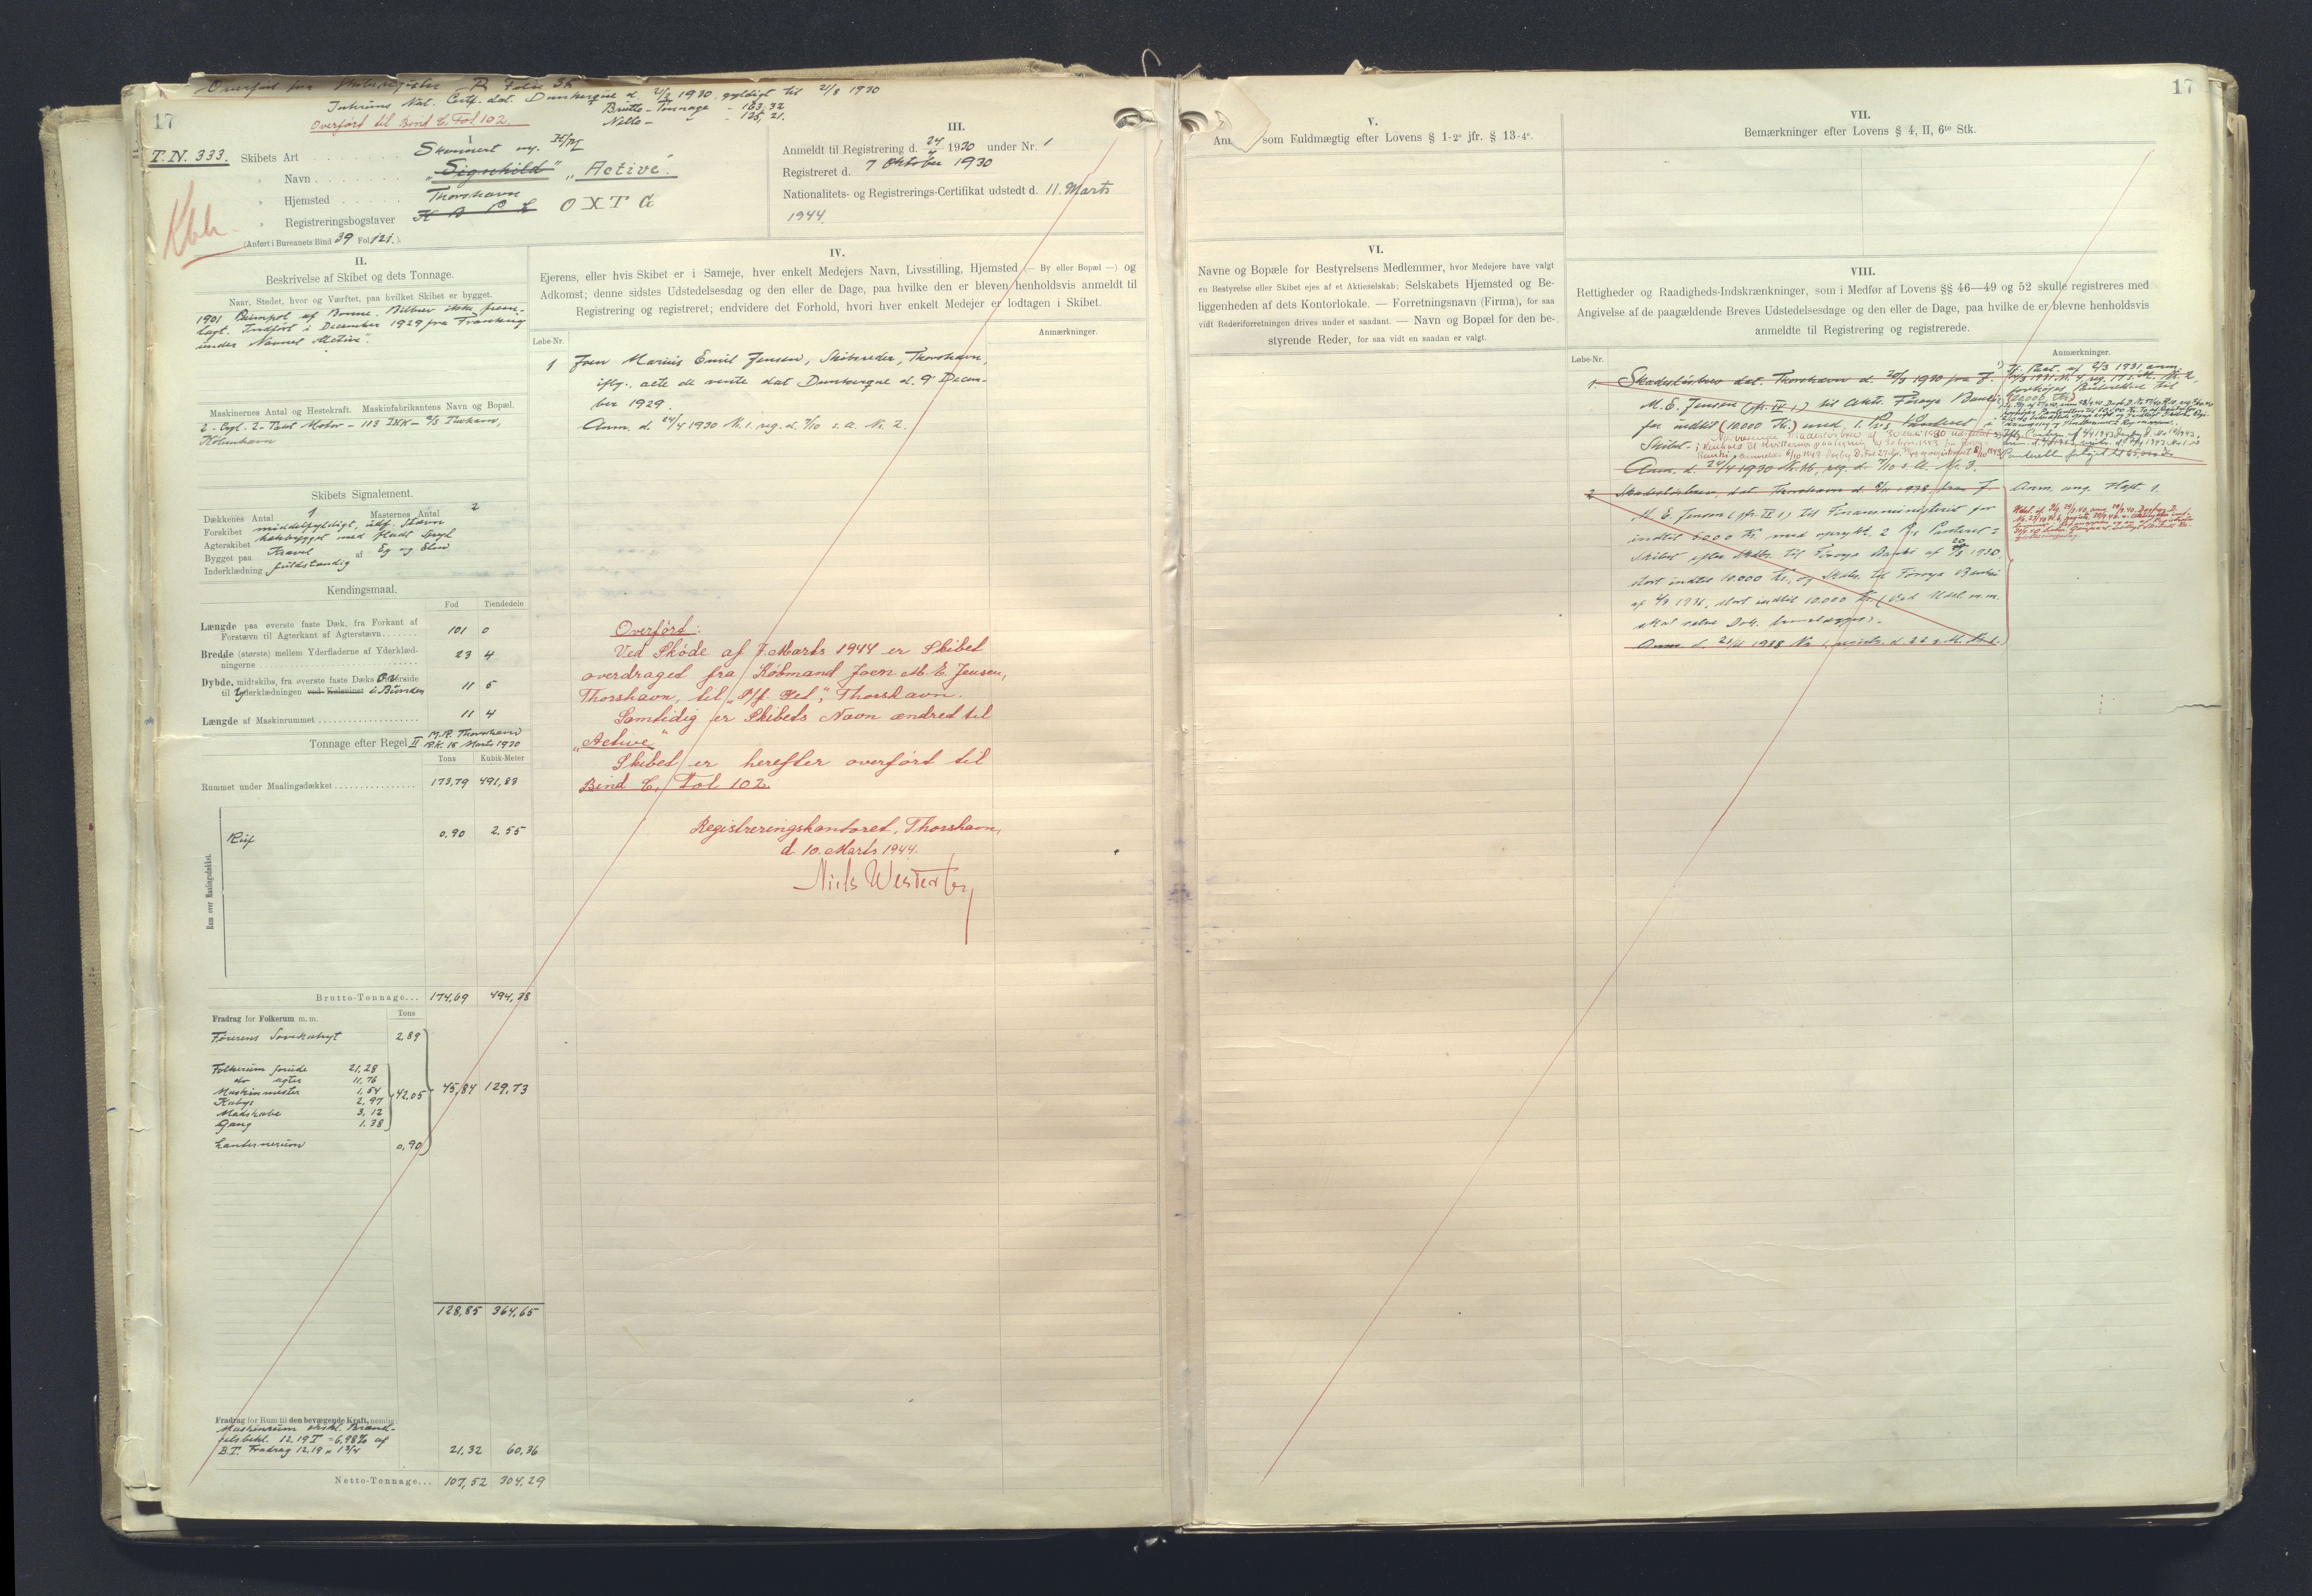 Overført fra Skibsregister R Folio 35
Interims Nat. Certf. dat. Dunkerque d. 21/3 1930, gyldigt til 21/8 1930
Brutto-Tonnage - 163,32
Netto- " - 125,21.
Overført til Bind C. Fol 102.
17
T.N. 333.
Kbh.
I
Skibets Art Skonnert m. H/M
" Navn "Signhild" "Active".
" Hjemsted Thorshavn
" Registreringsbogstaver OXTG
(Anført i Bureauets Bind 39 Fol 121.)
II.
Beskrivelse af Skibet og dets Tonnage.
Naar, Stedet, hvor og Værftet, paa hvilket Skibet er bygget.
1901 Paimpol af Bonne. Bilbrev ikke frem-
lagt. Indført i December 1929 fra Frankrig
under Navnet "Active".
Maskinernes Antal og Hestekraft. Maskinfabrikantens Navn og Bopæl.
2-Cyl. 2-Takt Motor - 113 IHK - A/S Tuxham,
København
Skibets Signalement.
Dækkenes Antal 1 Masternes Antal 2
Forskibet middelfyldigt, udf. Stævn
Agterskibet hækbygget med fladt Spejl
Bygget paa Kravel af Eg og Elm
Inderklædning fuldstændig
Kendingsmaal.
Fod Tiendedele
Længde paa øverste faste Dæk, fra Forkant af
Forstævn til Agterkant af Agterstævn 101 0
Bredde (største) mellem Yderfladerne af Yderklæd-
ningerne 23 4
Dybde, midtskibs, fra øverste faste Dæks Overside
til Yderklædningen ved Kølsvinet i Bunden 11 5
Længde af Maskinrummet 11 4
Tonnage efter Regel II M.B. Thorshavn
B.K. 15 Marts 1930
Tons Kubik-Meter
Rummet under Maalingsdækket 173,79 491,83
Rum over Maalingsdækket.
Ruf 0,90 2.55
Brutto-Tonnage... 174,69 494,38
Fradrag for Folkerum m. m. Tons
Førerens Sovekahyt 2,89
Folkerum forude 21,28
do agter 11,76
Maskinmester 1,54
Kabys 2,97
Madskabe 3,12
Gang 1.38
42,05 45,84 129,73
Lanternerum 0,90
128,85 364,65
Fradrag for Rum til den bevægende Kraft, nemlig:
Maskinrum ekskl. Brænd-
selsbeh. 12,19 T = 6,98% af
B.T. Fradrag 12,19 x 1 3/4 21,32 60,36
Netto-Tonnage... 107,52 304,29
III.
Anmeldt til Registrering d. 24/4 1930 under Nr. 1
Registreret d. 7 Oktober 1930
Nationalitets- og Registrerings-Certifikat udstedt d. 11. Marts
1944.
IV.
Ejerens, eller hvis Skibet er i Sameje, hver enkelt Medejers Navn, Livsstilling, Hjemsted (— By eller Bopæl —) og
Adkomst; denne sidstes Udstedelsesdag og den eller de Dage, paa hvilke den er bleven henholdsvis anmeldt til
Registrering og registreret; endvidere det Forhold, hvori hver enkelt Medejer er lodtagen i Skibet.
Løbe-Nr. Anmærkninger.
1 Joen Marius Emil Jensen, Skibsreder, Thorshavn,
iflg. acte de vente dat Dunkerque d. 9 Decem-
ber 1929.
Anm. d. 24/4 1930 Nr. 1. reg. d. 7/10 s. A. Nr. 2.
Overført:
Ved Skøde af 7. Marts 1944 er Skibet
overdraget fra Købmand Joen M. E. Jensen,
Thorshavn, til "P/f. Hed", Thorshavn.
Samtidig er Skibets Navn ændret til
"Active"
Skibet er herefter overført til
Bind C, Fol 102.
Registreringskontoret, Thorshavn,
d. 10. Marts 1944.
Niels Westerby
V.
som Fuldmægtig efter Lovens § 1-2° jfr. § 13-4°.
VI.
Navne og Bopæle for Bestyrelsens Medlemmer, hvor Medejere have valgt
en Bestyrelse eller Skibet ejes af et Aktieselskab; Selskabets Hjemsted og Be-
liggenheden af dets Kontorlokale. — Forretningsnavn (Firma), for saa
vidt Rederiforretningen drives under et saadant. — Navn og Bopæl for den be-
styrende Reder, for saa vidt en saadan er valgt.
VII.
Bemærkninger efter Lovens § 4, II, 6te Stk.
17
VIII.
Rettigheder og Raadigheds-Indskrænkninger, som i Medfør af Lovens §§ 46—49 og 52 skulle registreres med
Angivelse af de paagældende Breves Udstedelsesdage og den eller de Dage, paa hvilke de er blevne henholdsvis
anmeldte til Registrering og registrerede.
Løbe-Nr. Anmærkninger.
1. Skadesløsbrev dat. Thorshavn d. 20/3 1930 fra J.
M. E. Jensen (jfr. IV 1) til Akts. Føroya Banki
for indtil (10.000 Kr.) med 1. Pr. Panteret i
Skibet.
Anm. d. 24/4 1930 Nr. 16, reg. d. 7/10 s. A. Nr. 3.
2 Skadesløsbrev, dat. Thorshavn d. 1938 fra J.
M. E. Jensen (jfr. IV 1) til Finansministeriet for
indtil 6000 Kr. med oprykk. 2 Pr. Panteret i
Skibet efter Skdbr. til Føroya Banki af 20/3 1930,
stort indtil 10.000 Kr., og Skdbr. til Føroya Banki
af 2/3 1931, stort indtil 10.000 Kr. (Ved Udsl. m.m.
skal selve Dok. fremlægges).
Anm. ang. Hæft. 1.